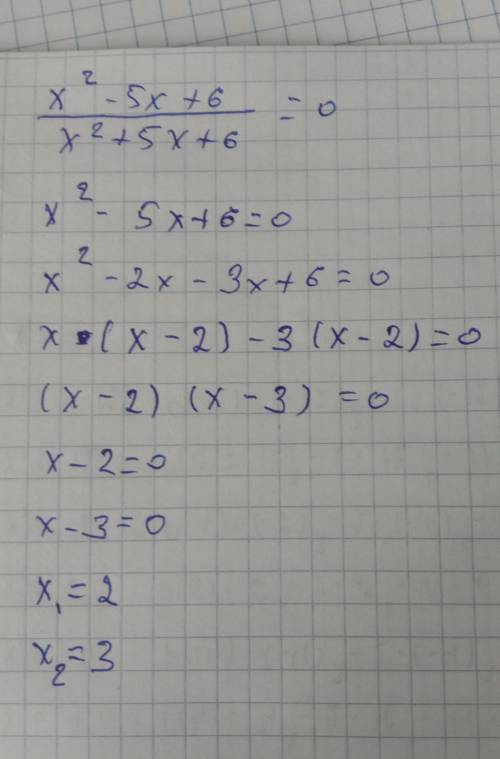 x² - 5x + 6
x² + 5x + 6 = 0
x² - 5x + 6 = 0
x² - 2x - 3x + 6 = 0
x · (x - 2) - 3 (x - 2) = 0
(x - 2) (x - 3) = 0
x - 2 = 0
x - 3 = 0
x₁ = 2
x₂ = 3